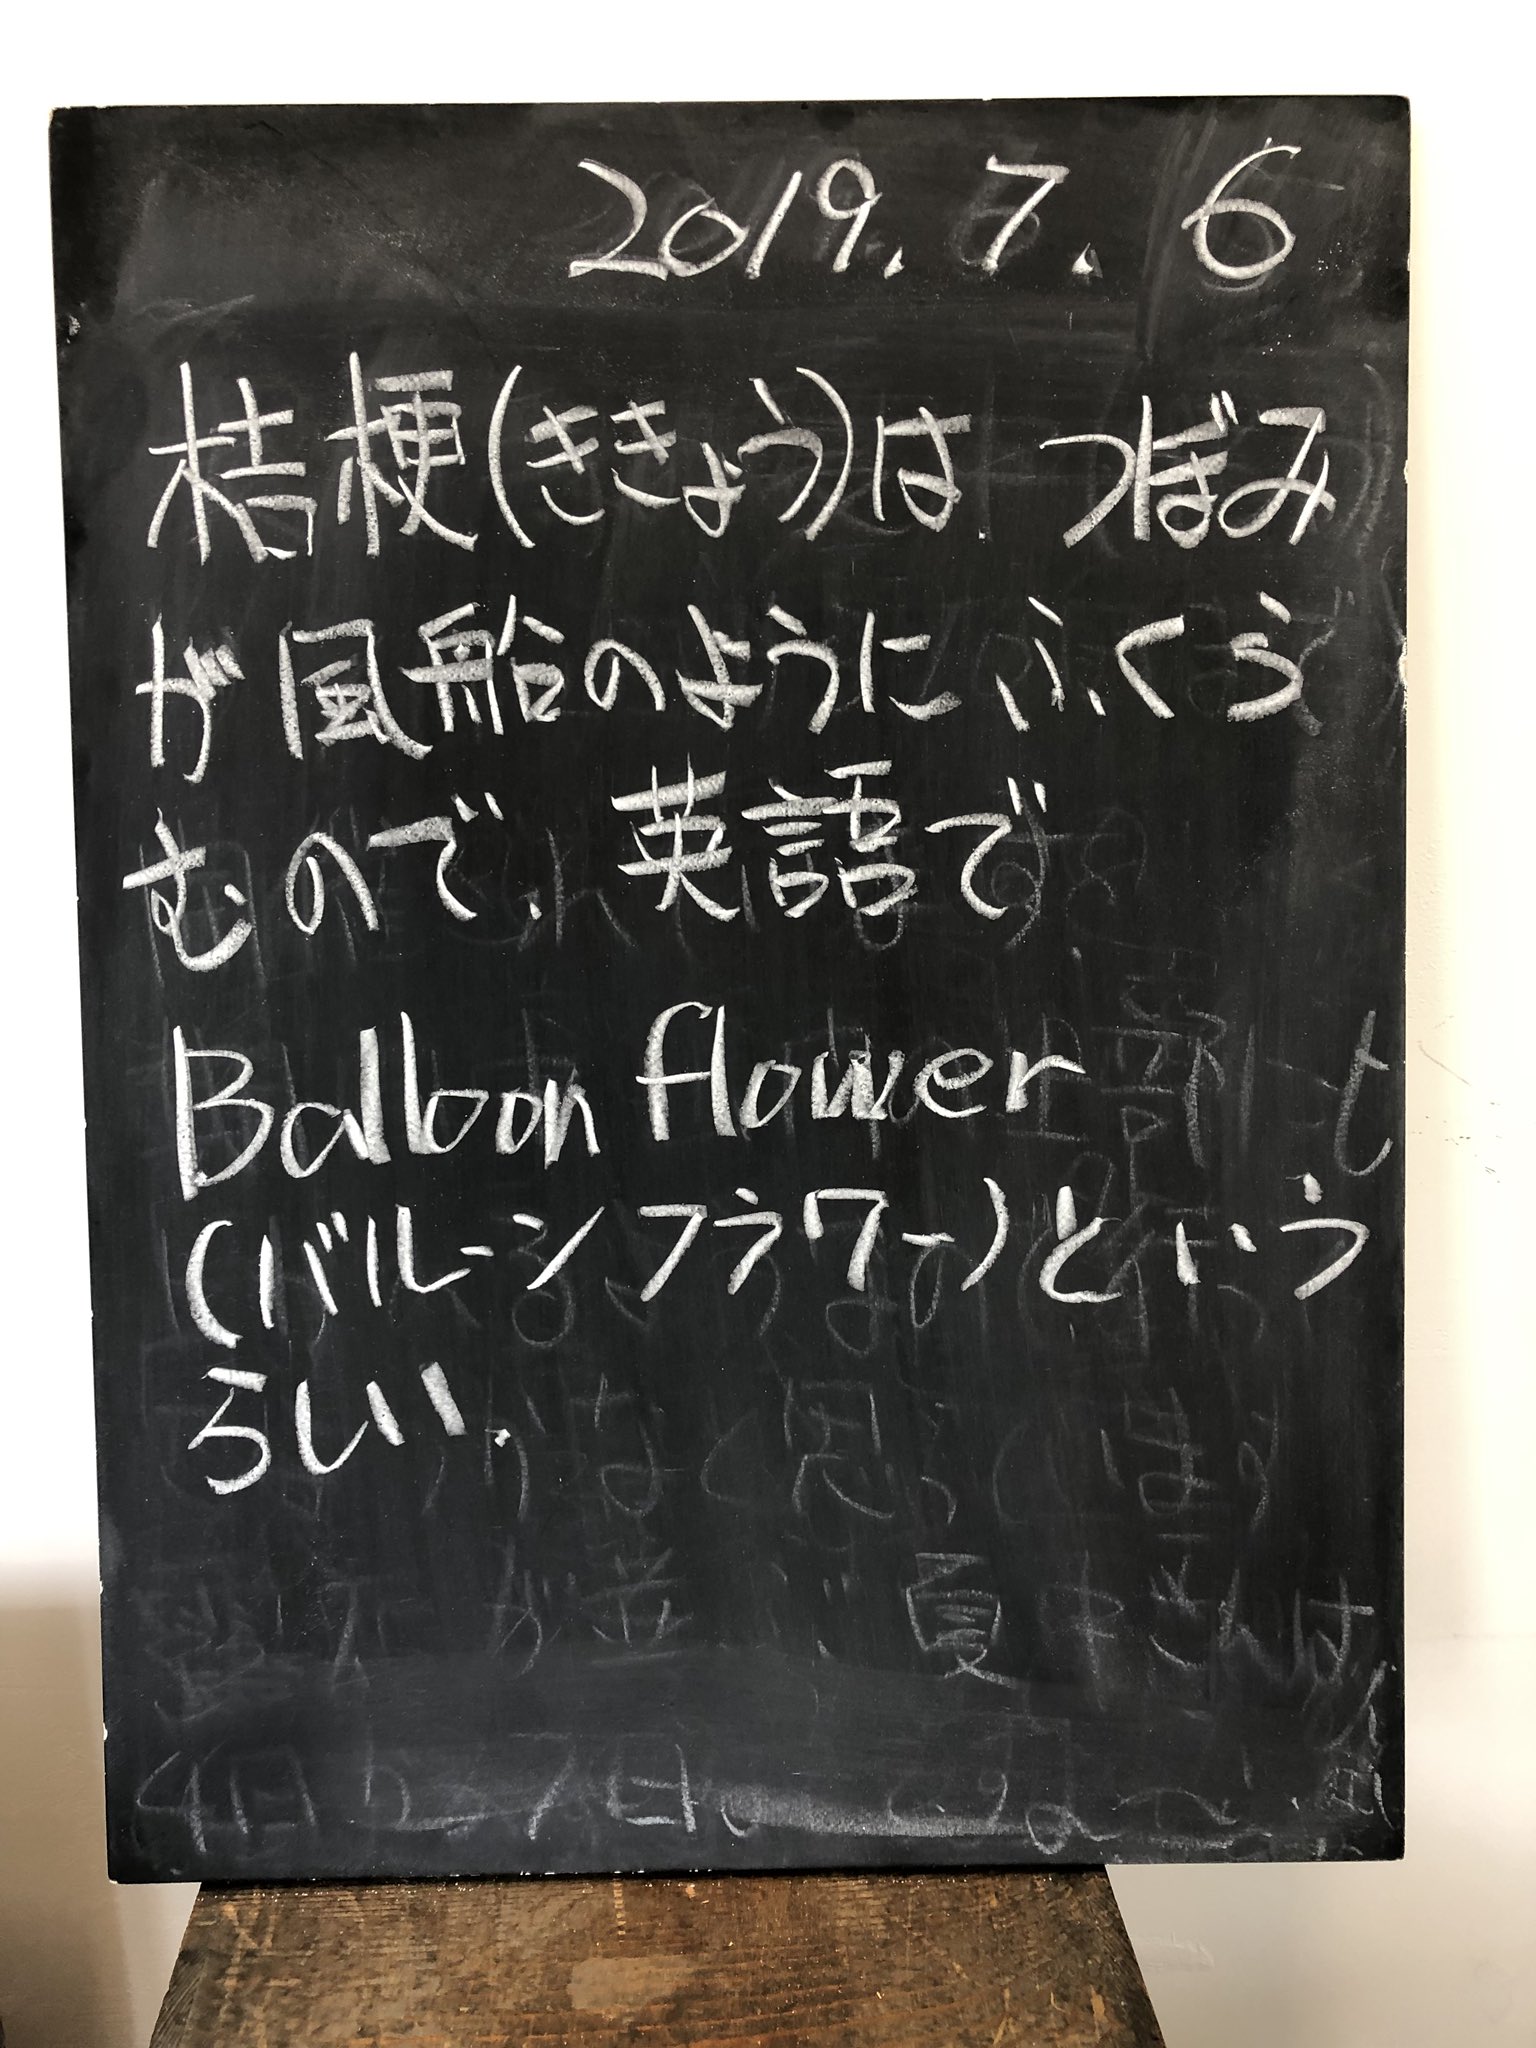 2019.7.6
桔梗(ききょう)は つぼみ
が風船のように ふくら
むので、英語で
Balloon flower
(バルーンフラワー)という
らしい.